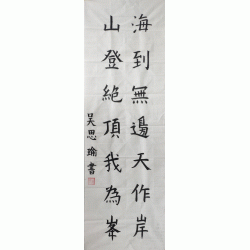 海到無邊天作岸
山登絶頂我為峯
吴思瑜書